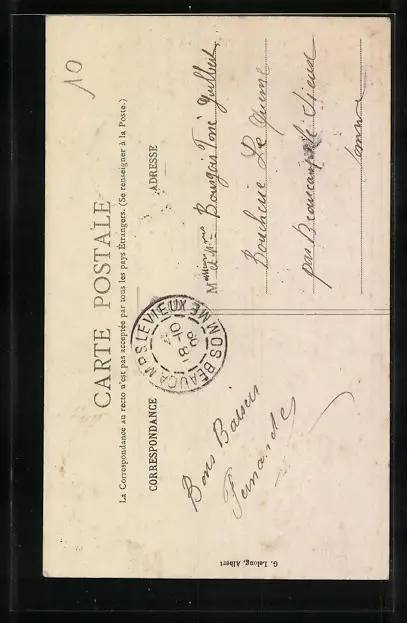 10
CARTE POSTALE
La Correspondance au recto n'est pas acceptée par tous les pays Étrangers. (Se renseigner à la Poste.)
CORRESPONDANCE
ADRESSE
Bons Baisers
Fernande
M et Mme Bourgois
Boucherie Le Quesne
par Beaucamps le Vieux
Somme
BEAUCAMPS-LE-VIEUX SOMME
10
8-
06
G. Lelong, Albert